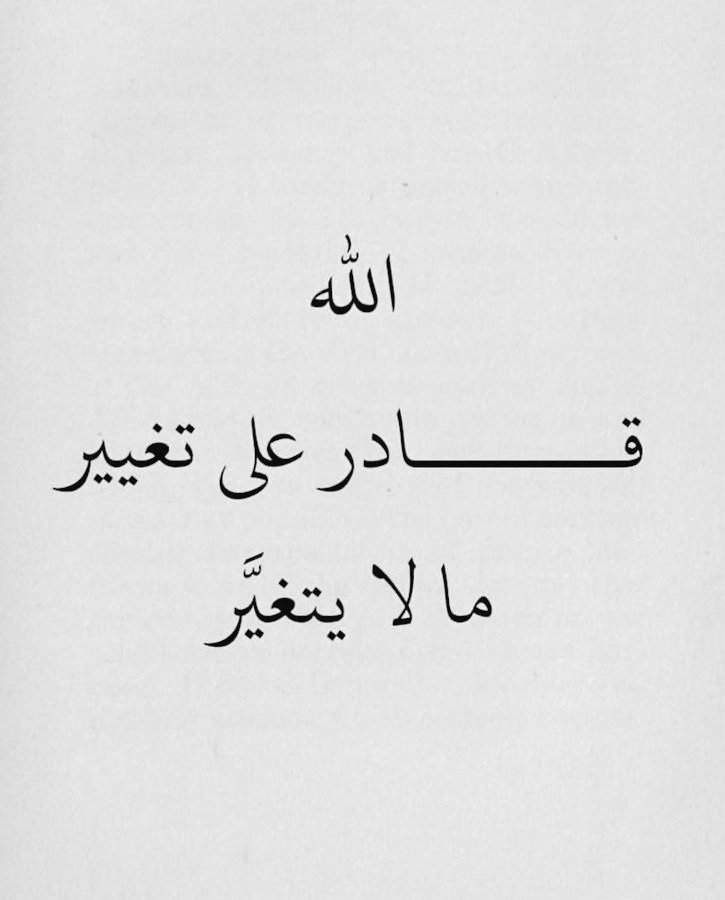 الله
قـــــــادر على تغيير
ما لا يتغيَّر